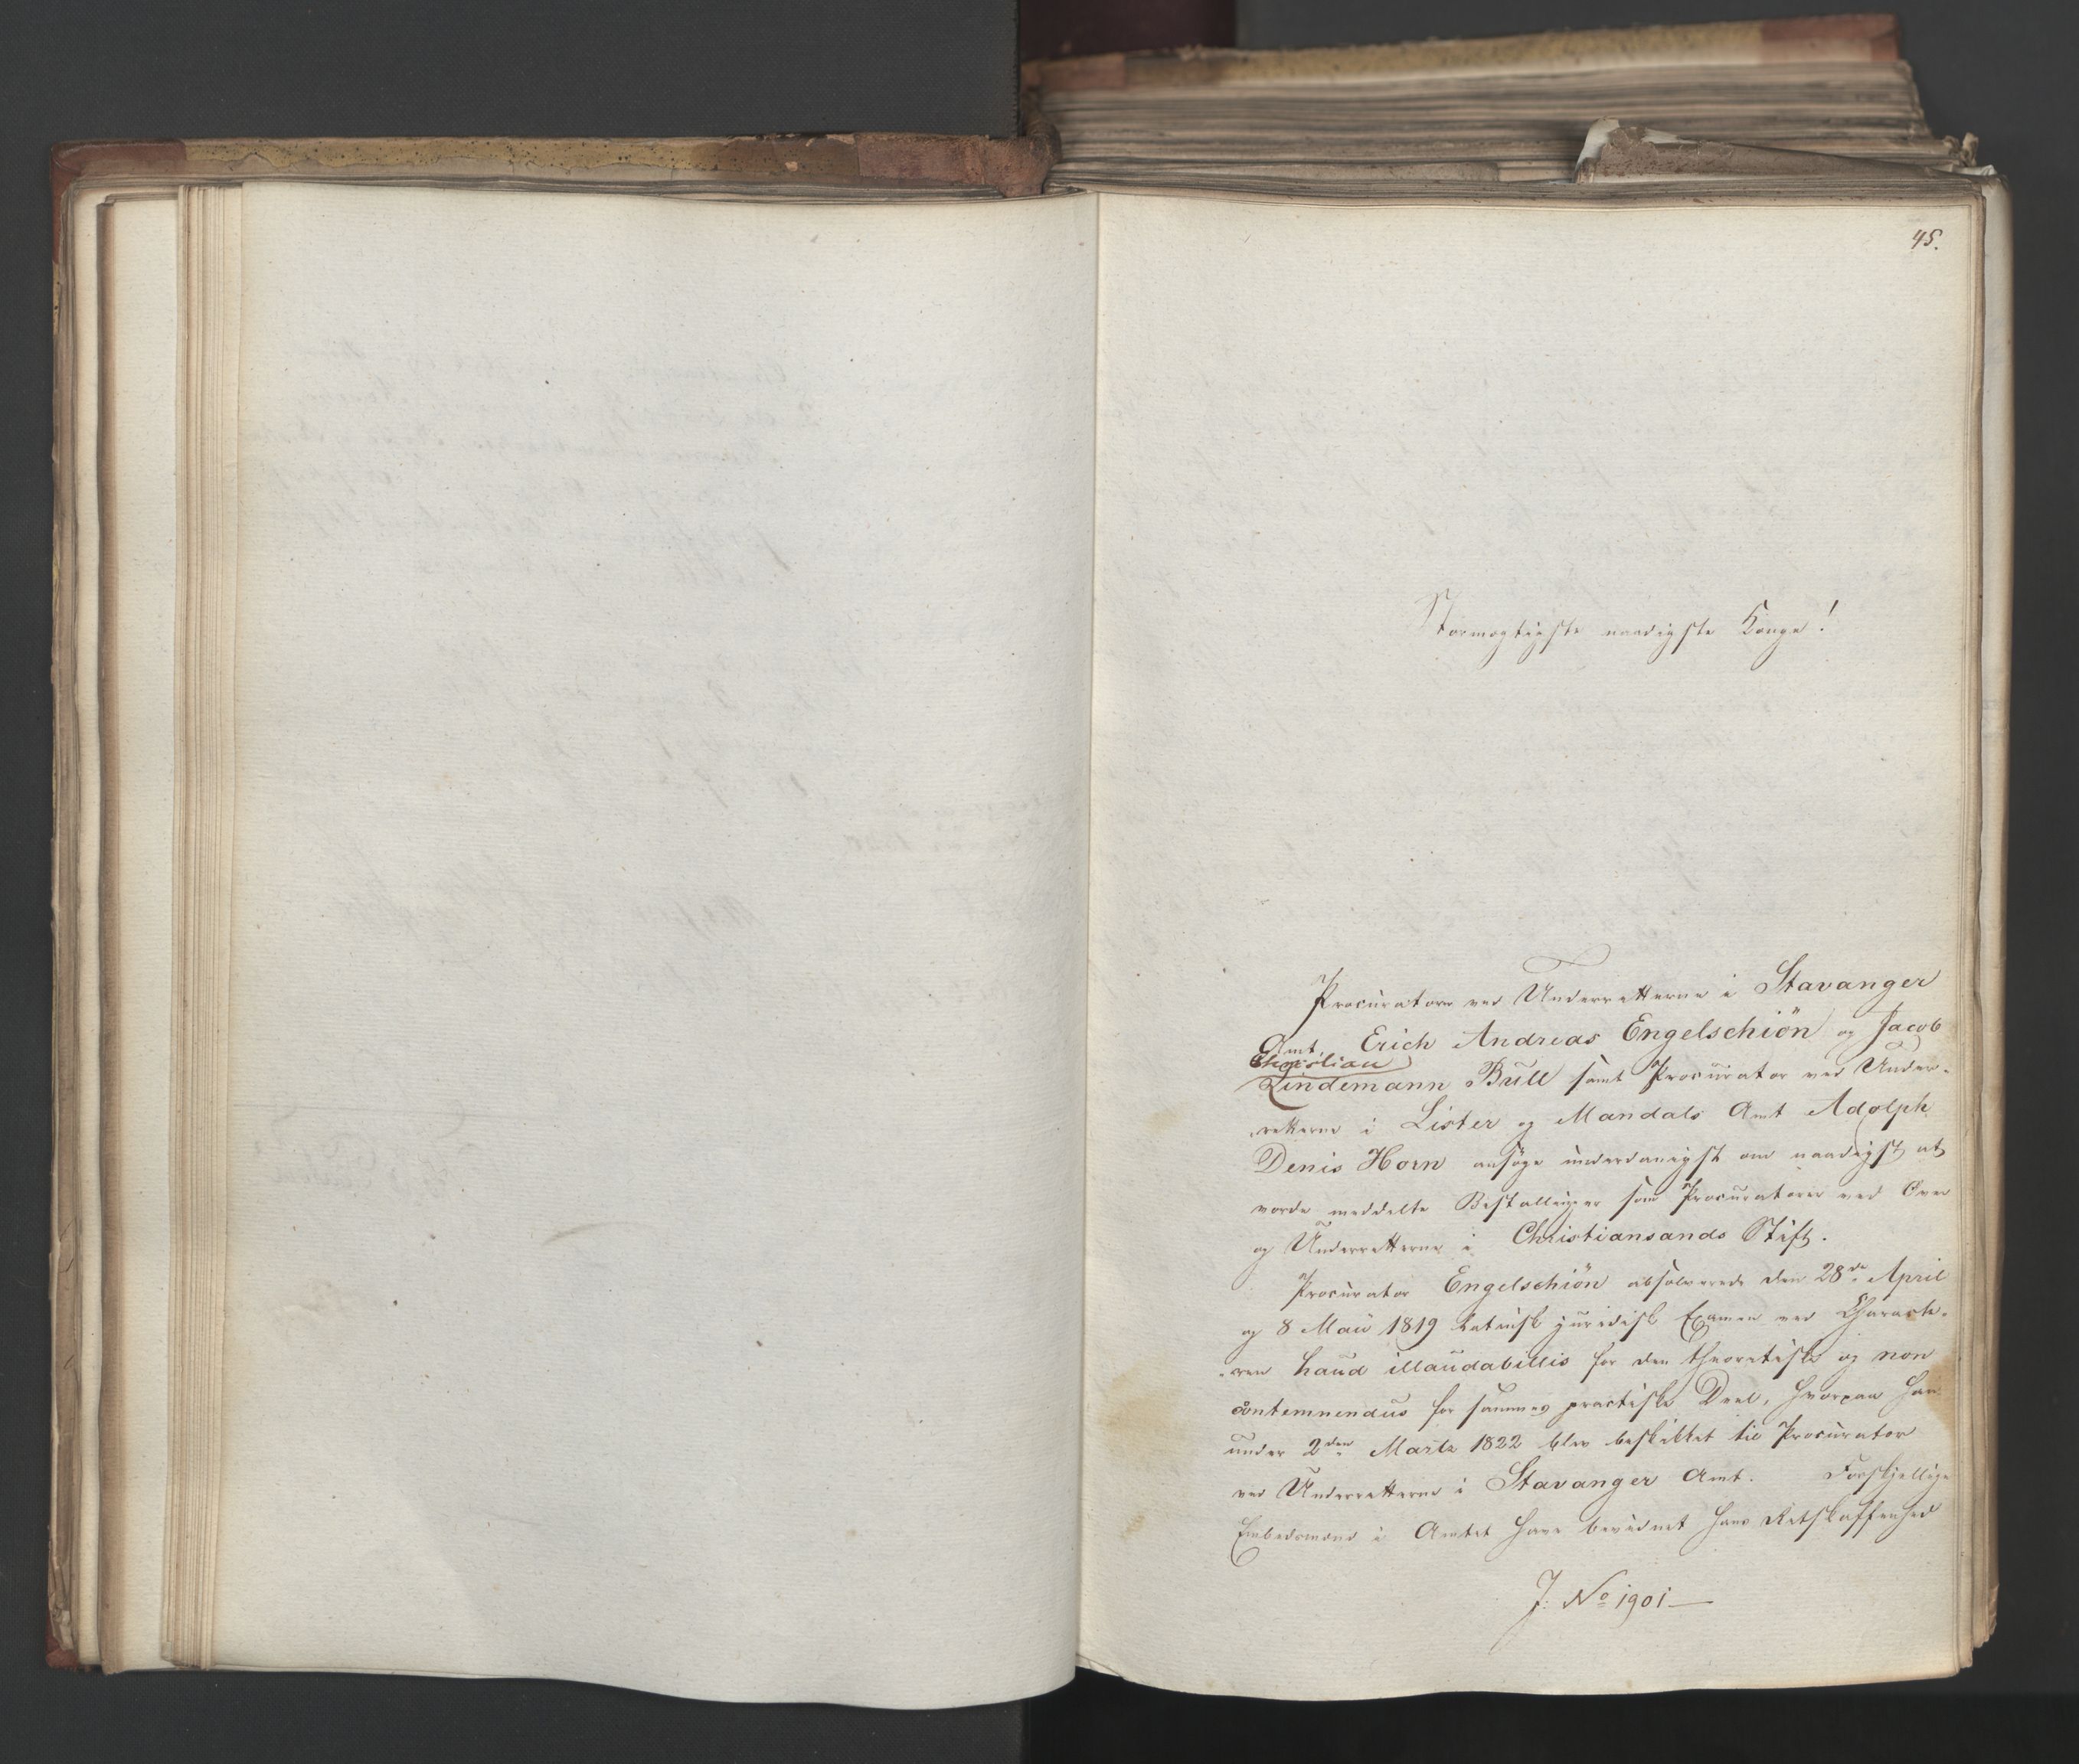 45.
Stormægtigste naadigste Konge!
Procuratorer ved Underretterne i Stavanger
Amt, Erich Andreas Engelschiön og Jacob
Christian
Lindemann Bull samt Procurator ved Under-
retterne i Lister og Mandals Amt Adolph
Denis Horn ansøge underdanigst om naadigst at
vorde meddelte Bestallinger som Procuratorer ved Over
og Underretterne i Christiansands Stift.
Procurator Engelschiön absolverede den 28de April
og 8 Mai 1819 latinsk juridisk Examen ved Charact-
eren haud illaudabillis for den theoretiske og non
contemnendus for sammes practiske Deel, hvorpaa han
under 2den Martz 1822 blev beskikket til Procurator
ved Underretterne i Stavanger Amt. Forskjellige
Embedsmænd i Amtet have bevidnet hans Retskaffenhed
J: No 1901